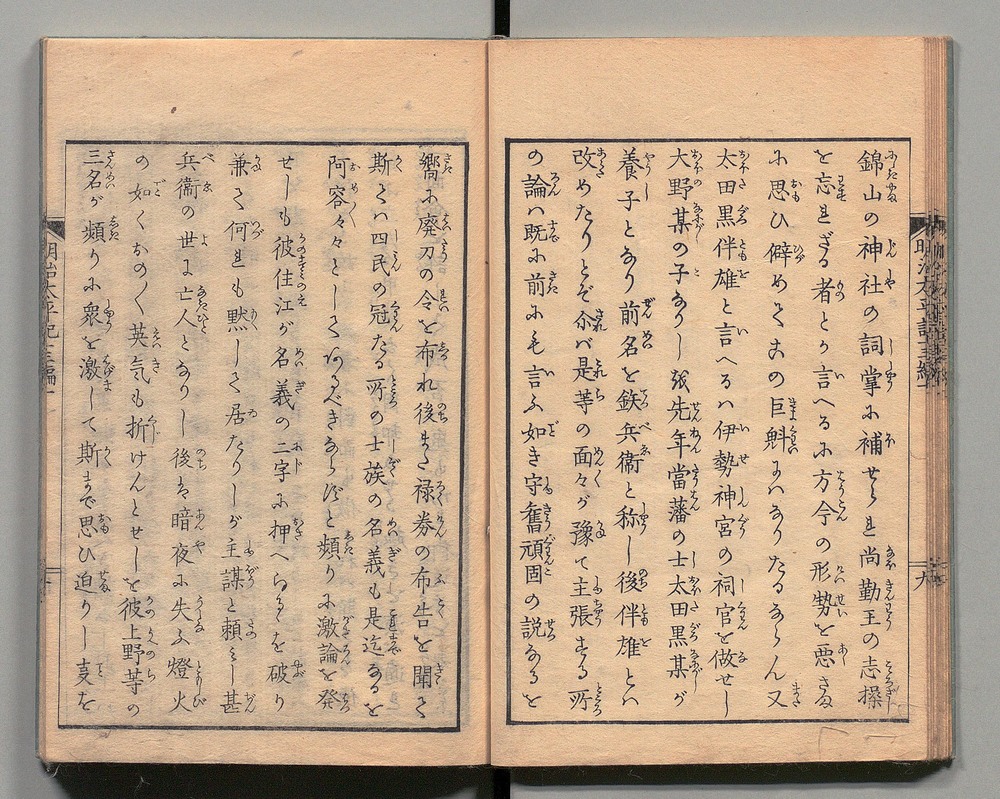 錦山の神社の詞掌に補せられ尚勤王の志操
を忘れざる者とか言へるに方今の形勢を悪さま
に思ひ僻めてこの巨魁にハなりたるならん又
太田黒伴雄と言へるハ伊勢神宮の祠官を做せし
大野某の子なりしが先年當藩の士太田黒某が
養子となり前名を鉄兵衞と称し後伴雄とハ
改めたりとぞ尒バ是等の面々が豫て主張する所
の論ハ既に前にも言ふ如き守舊頑固の説なるを
嚮に廃刀の令を布れ後また禄劵の布告を聞く
斯てハ四民の冠たる所の士族の名義も是迄なるを
阿容々々としてあるべきならずと頻りに激論を発
せしも彼住江が名義の二字に押へらるゝを破り
兼て何れも黙して居たりしが主謀と頼みし甚
兵衞の世に亡人となりし後は暗夜に失ふ燈火
の如くおの〳〵英気も折けんとせしを彼上野等の
三名が頻りに衆を激して斯まで思ひ迫りし事を
明治太平記十三編一
九